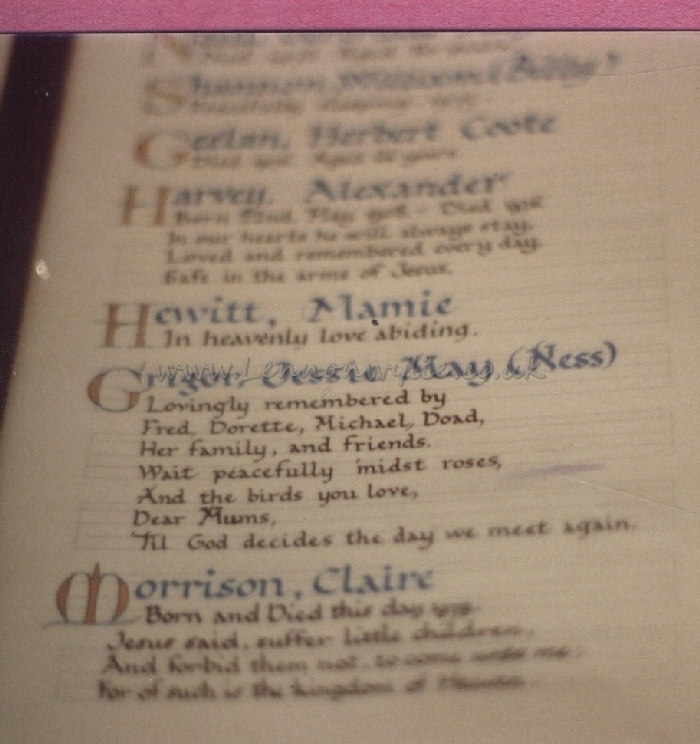 Shannon, William (Billy)
Geelan, Herbert Coote
Died Aged years
Harvey, Alexander
Born May Died
In our hearts he will always stay,
Loved and remembered every day.
Safe in the arms of Jesus.
Hewitt, Mamie
In heavenly love abiding.
Grigor Jessie May (Ness)
Lovingly remembered by
Fred, Dorette, Michael, Doad,
Her family, and friends.
Wait peacefully 'midst roses,
And the birds you love,
Dear Mums,
'Til God decides the day we meet again.
Morrison, Claire
Born and Died this day
Jesus said, suffer little children,
And forbid them not, to come unto me:
For of such is the kingdom of Heaven.